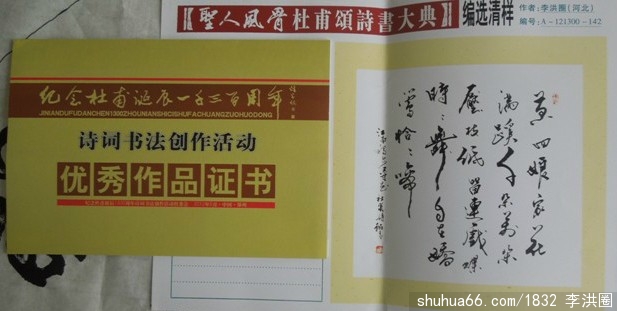 【聖人風骨杜甫頌詩書大典】
编选清样
作者：李洪圈（河北）
编号：A－121300－142
纪念杜甫诞辰一千三百周年
JINIANDUFUDANCHEN1300ZHOUNIANSHICISHUFACHUANGZUOHUODONG
诗词书法创作活动
优秀作品证书
黄四娘家花
满蹊千朵万朵
压枝低留连戏蝶
时时舞自在娇
莺恰恰啼
shuhua66.com/1832 李洪圈